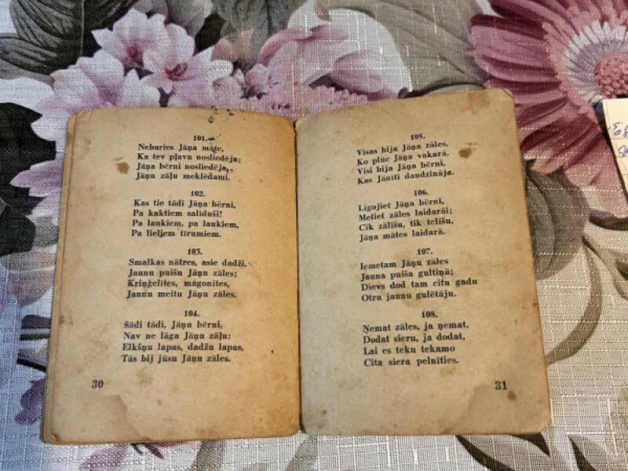 101.
Nebaries Jāņa māte,
Ka tev pļavu nosliedēja;
Jāņa bērni nosliedēja,
Jāņu zāļu meklēdami.
102.
Kas tie tādi Jāņa bērni,
Pa kaktiem salīduši!
Pa laukiem, pa laukiem,
Pa lieljem tīrumiem.
103.
Smalkas nātres, asie dadži,
Jaunu puišu Jāņu zāles;
Kriņģelītes, māgonītes,
Jaunu meitu Jāņu zāles.
104.
Šādi tādi, Jāņu bērni,
Nav ne lāga Jāņu zāļu:
Elkšņu lapas, dadžu lapas,
Tās bij jūsu Jāņu zāles.
30
105.
Visas bija Jāņa zāles,
Ko plūc Jāņa vakarā.
Visi bija Jāņa bērni,
Kas Jānīti daudzināja.
106.
Līgojiet Jāņa bērni,
Metiet zāles laidarāi;
Cik zālīšu, tik telīšu,
Jāņa mātes laidarā.
107.
Iemetam Jāņu zāles
Jauna puiša gultiņā;
Dievs dod tam citu gadu
Otru jaunu gulētāju.
108.
Ņemat zāles, ja ņemat,
Dodat sieru, ja dodat,
Lai es teku tekamo
Cita siera pelnīties.
31